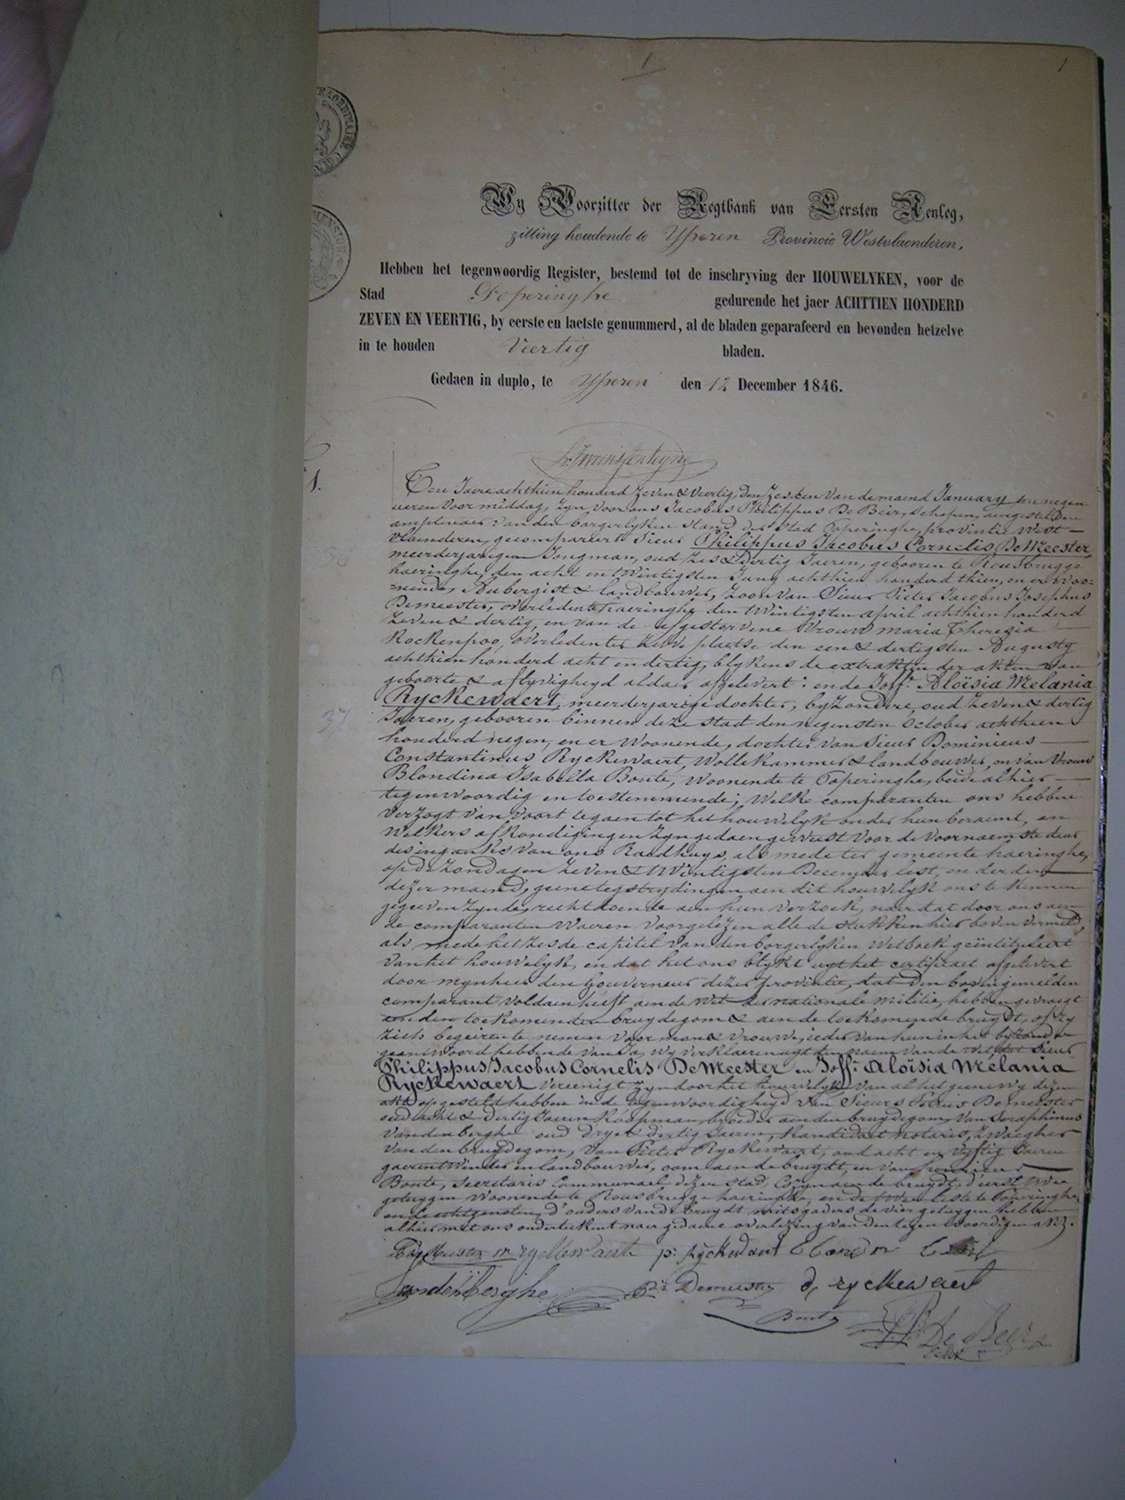 1
1
Wy Voorzitter der Regtbank van Eersten Aenleg,
zitting houdende te Yperen Provincie Westvlaenderen.
Hebben het tegenwoordig Register, bestemd tot de inschryving der HOUWELYKEN, voor de
Stad Poperinghe gedurende het jaer ACHTTIEN HONDERD
ZEVEN EN VEERTIG, by eerste en laetste genummerd, al de bladen geparafeerd en bevonden hetzelve
in te houden Veertig bladen.
Gedaen in duplo, te Yperen den 12 December 1846.
1.
Ten Jaere achthien honderd zeven & Veertig, den zesden van de maend January, ten negen
ueren voor middag, zyn, voor ons Jacobus Philippus De Beir, schepen, aengestelden
amptenaer van den borgerlyken stand der stad Poperinghe, provintie West-
vlaenderen, gecompareert Sieur Philippus Jacobus Cornelis De Meester
meerderjarigen Jongman, oud zes & dertig Jaeren, gebooren te Rousbrugge
haeringhe, den acht en twintigsten Juny achthien honderd thien, en er woo-
nende, Aubergist & landbouwer, zoon van Sieur Pieter Jacobus Josephus
Demeester, overleden te haeringhe den twintigsten april achthien honderd
zeven & dertig, en van de afgestorvene Vrouw Maria Theresia
Rockenpoo, overleden ter zelve plaetse den een & dertigsten Augusty
achthien honderd acht en dertig, blykens de extrakten der akten van
geboorte & aflyvigheyd aldaer afgelevert: en de Joffr. Aloïsia Melania
Ryckewaert, meerderjarige dochter, byzondere, oud zeven & dertig
Jaeren, gebooren binnen deze stad den negensten October achthien
honderd negen, en er woonende, dochter van Sieur Dominicus
Constantinus Ryckewaert, Wollekammer & landbouwer, en van Vrouw
Blondina Isabella Bonte, woonende te Poperinghe, beide alhier
tegenwoordig en toestemmende; Welke comparanten ons hebben
verzogt van voort te gaen tot het houwelyk onder hun beraemt, en
welkers afkondigingen zyn gedaen geweest voor de voornaemste deur
des ingangs van ons Raedhuys, als mede ter gemeente haeringhe,
op de zondagen zeven & twintigsten December lest, en derden
dezer maend; geene tegstrydingen aen dit houwelyk ons te kennen
gegeeven zynde, recht doende aen hun verzoek, naer dat door ons aen
de comparanten waeren voorgelezen alle de stukken hier boven vermeld
als mede het zesde capitel van den borgerlyken Wetboek geïntituleert
van het houwelyk, en dat het ons blykt uyt het certificaet afgelevert
door mynheer den Gouverneur dezer provintie, dat den bovengemelden
comparant voldaen heeft aen de Wet der nationale militie, hebben gevraegt
aen den toekomenden bruydegom & aen de toekomende bruydt, of zy
zich begeiren te nemen voor man & vrouw; ieder van hun in het byzonder
geantwoord hebbende van Ja, Wy verklaeren uyt den naem van de wet, dat Sieur
Philippus Jacobus Cornelis De Meester en Joffr. Aloïsia Melania
Ryckewaert vereenigt zyn door het houwelyk: van al het gene wy dezen
akt opgesteld hebben in de tegenwoordigheyd van Sieurs Pieter Demeester
oud acht & dertig Jaeren Koopman, broeder aen den bruydegom, Van Seraphinus
Vandenberghe oud dry & dertig Jaeren, Kandidaet notaris, Zwaeger
van den bruydegom, Van Pieter Ryckewaert, oud acht en vyftig Jaeren
garentwinder en landbouwer, oom aen de bruydt, en van
Bonte, secretaris communael dezer stad, Cozyn aen de bruydt, d'eerst twee
getuygen woonende te Rousbrugge haeringhe, en de twee leste te Poperinghe
en de echtgenoten, d'ouders van de bruydt mitsgaders de vier getuygen hebben
alhier met ons onderteekent naer gedaene overlezing van den tegenwoordigen akt.
Demeester m ryckewaert p: ryckewaert
Vandenberghe Pr Demeester d, ryckewaert
Bonte De Beir